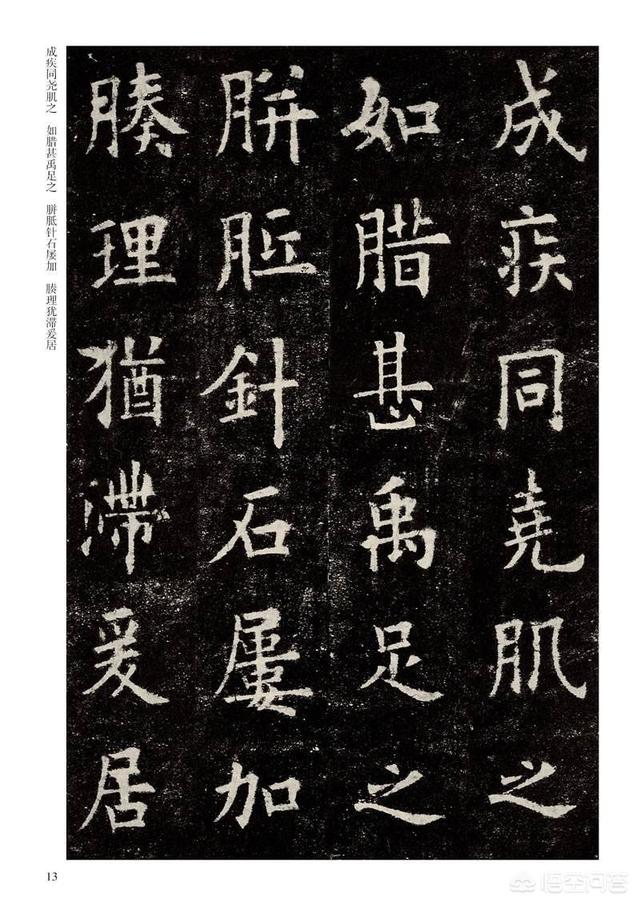 成疾同堯肌之
如腊甚禹足之
胼胝針石屢加
腠理猶滯爰居
成疾同尧肌之 如腊甚禹足之 胼胝针石屡加 腠理犹滞爰居
13
悟空问答